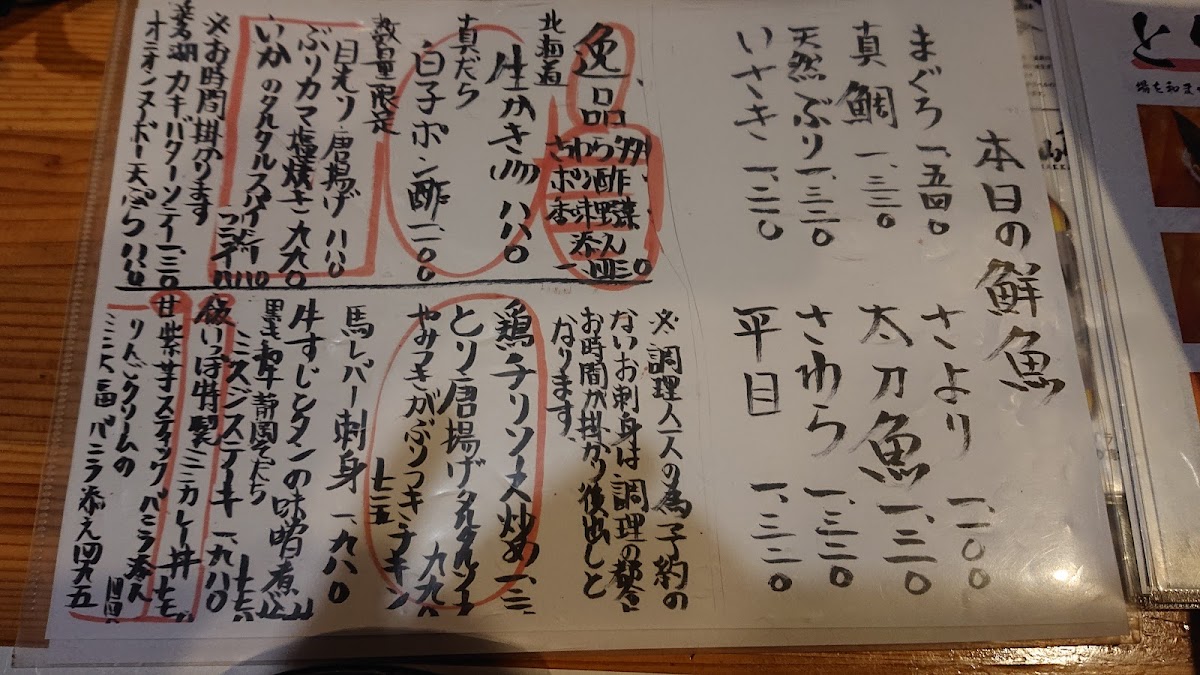 本日の鮮魚
まぐろ 一、五四〇
真鯛 一、三三〇
天然ぶり 一、三二〇
いさき 一、二一〇
さより 一、一〇〇
太刀魚 一、三一〇
さわら 一、三二〇
平目 一、三二〇
逸品
さわらポン酢
香味野菜添え
北海道
生かき
八八〇
真だら
白子ポン酢 一、一〇〇
数量限定
目光り唐揚げ 八八〇
ぶりカマ塩焼き 九九〇
いかのタルタルスパイシー
※お時間掛かります
カキバターソテー 一、一三〇
オニオンヌードド天ぷら 八八〇
※調理人一人の為予約の
ないお刺身は調理の都合
お時間が掛かり後出しと
なります。
鶏チリソース炒め
とり唐揚げタルタルソース
九九〇
やみつきがぶりつきチキン
七一五
馬レバー刺身 一、九八〇
牛すじとタンの味噌煮込
黒毛和牛静岡そだち
ミスジステーキ 一、九八〇
飯いっぱ特製ミニカレー丼
甘柴芋スティックバニラ添え
りんごクリームの
ミニ大福バニラ添え 四九五